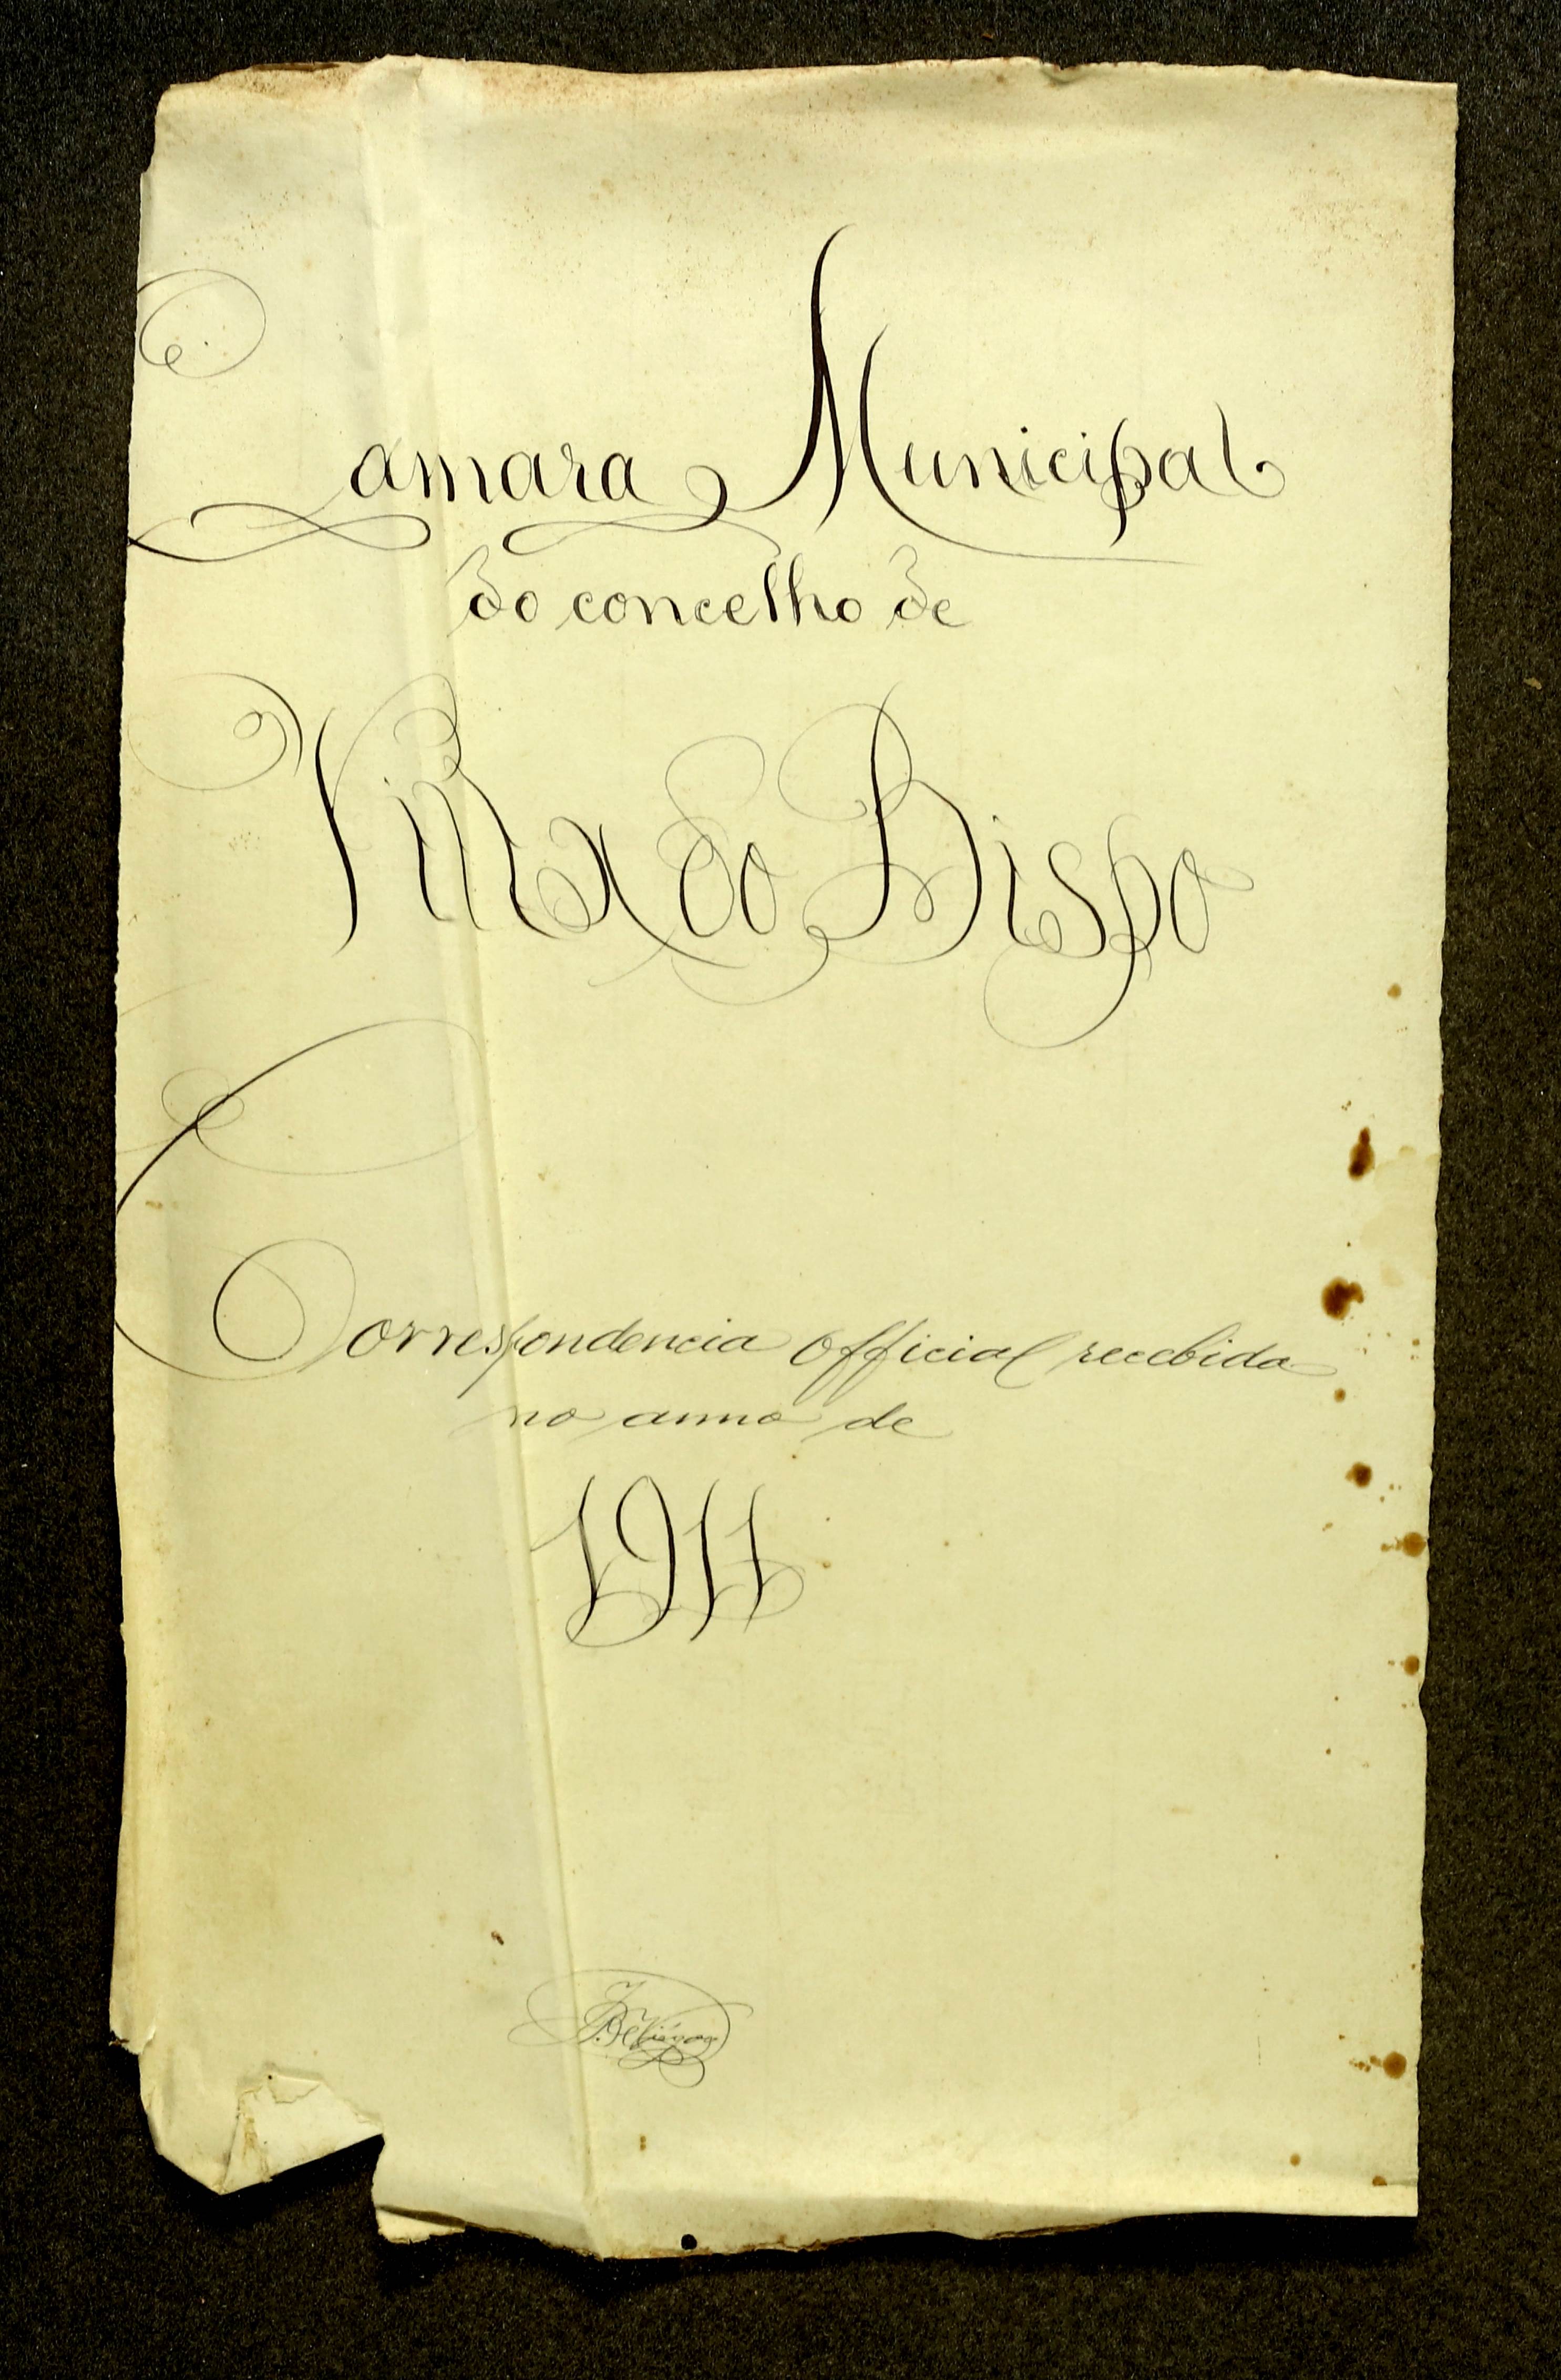 Camara Municipal
do concelho de
Villa do Bispo
Correspondencia official recebida
no anno de
1911